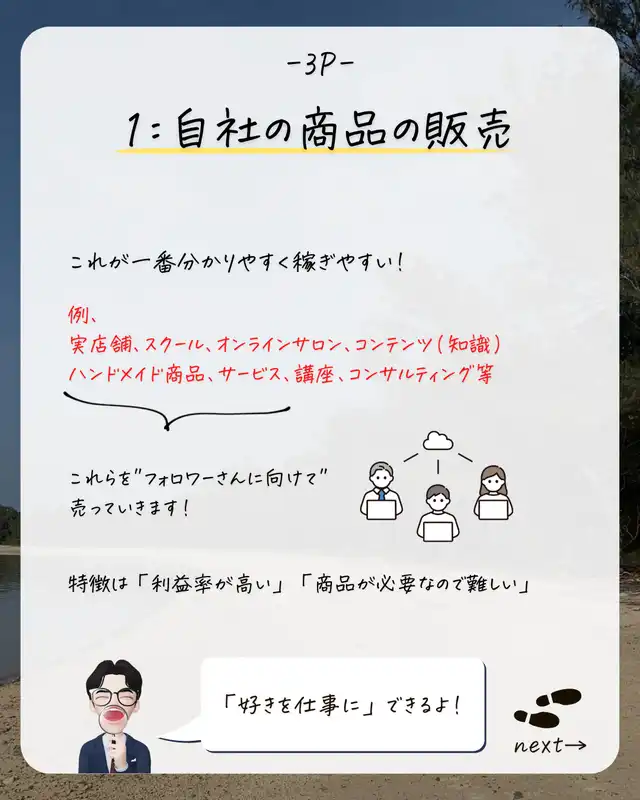 -3P-
1:自社の商品の販売
これが一番分かりやすく稼ぎやすい!
例、
実店舗、スクール、オンラインサロン、コンテンツ(知識)
ハンドメイド商品、サービス、講座、コンサルティング等
これらを"フォロワーさんに向けて"
売っていきます!
特徴は「利益率が高い」「商品が必要なので難しい」
「好きを仕事に」できるよ!
next→